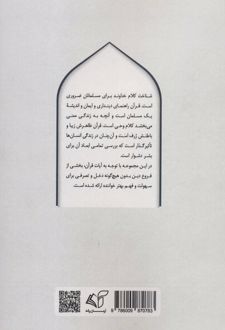 شناخت کلام خداوند برای مسلمانان ضروری
است. قرآن راهنمای دینداری و ایمان و اندیشهٔ
یک مسلمان است و آنچه به زندگی معنی
می‌بخشد کلام وحی است. قرآن ظاهرش زیبا و
باطنش ژرف است و آن‌چنان در زندگی انسان‌ها
تأثیرگذار است که بررسی تمامی ابعاد آن برای
بشر دشوار است.
در این مجموعه با توجه به آیات قرآن، بخشی از
فروع دین بدون هیچ‌گونه دخل و تصرفی برای
سهولت و فهم بهتر خواننده ارائه شده است.